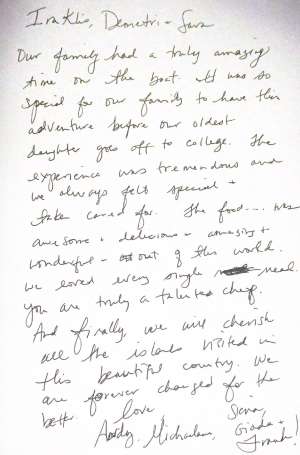 Iraklis, Demetri + Sara
Our family had a truly amazing
time on the boat. It was so
special for our family to have this
adventure before our oldest
daughter goes off to college. The
experience was tremendous and
we always felt special +
take cared for. The food.... was
awesome + delicious + amazing +
wonderful - out of this world.
We loved every single meal.
You are truly a talented chef.
And finally, we will cherish
all the islands visited in
this beautiful country. We
are forever changed for the
better. Love,
Andy, Michaelann, Giada +
Frank!